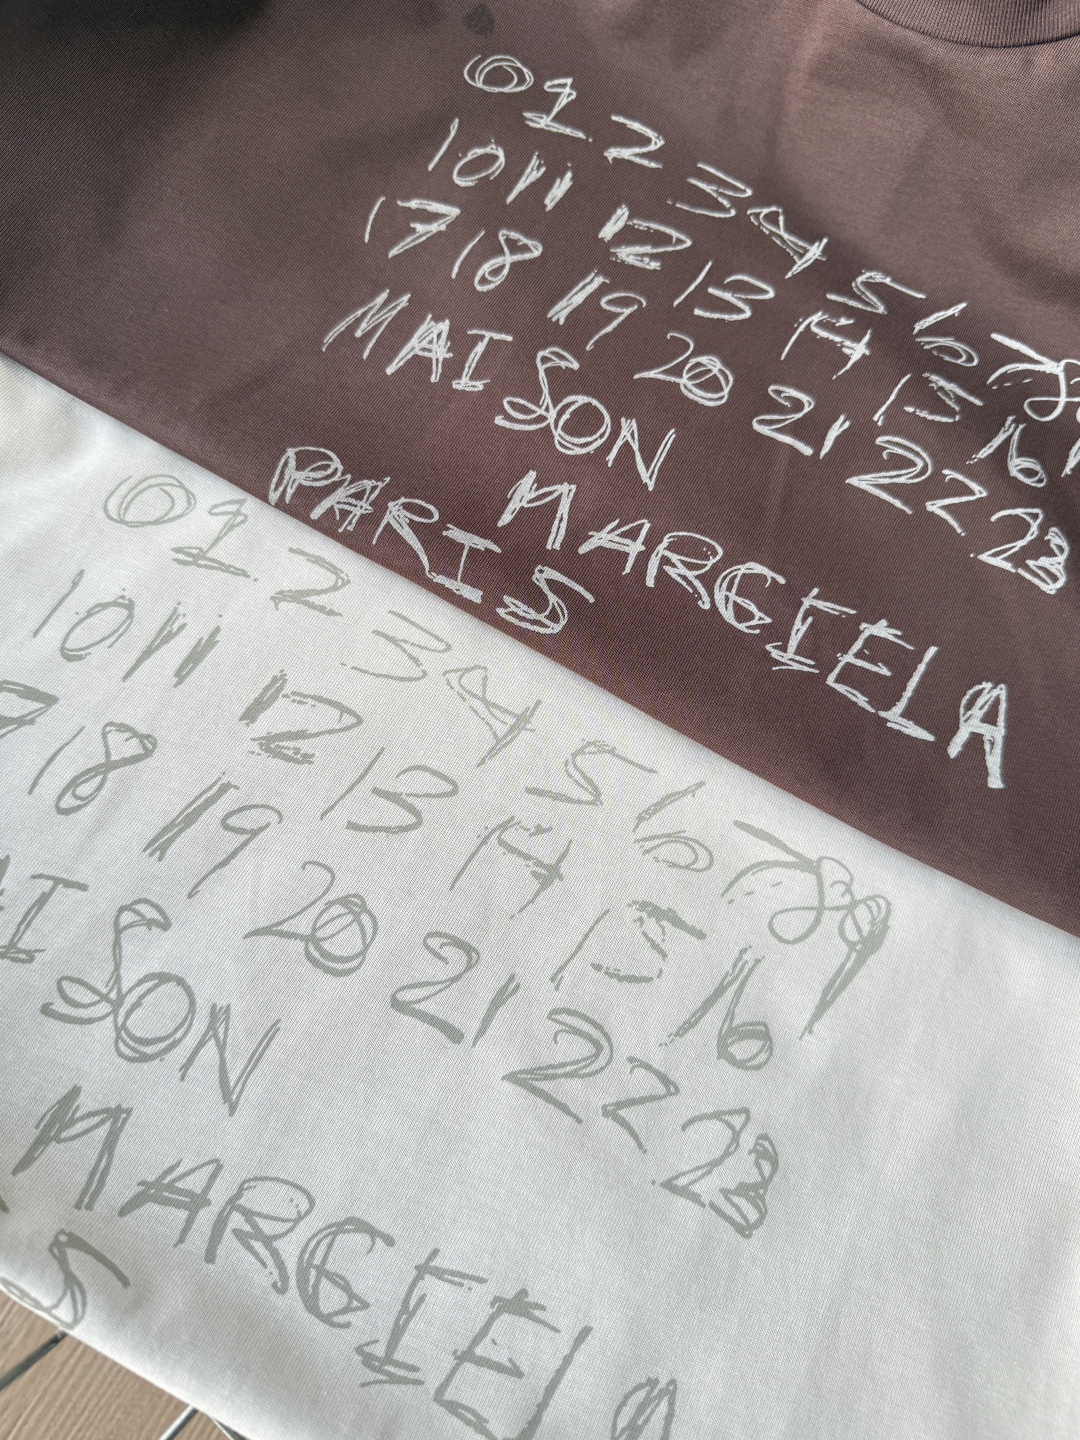 0 1 2 3 4 5 6 7 8
10 11 12 13 14 15 16
17 18 19 20 21 22 23
MAISON
MARGIELA
PARIS
0 1 2 3 4 5 6 7 8 9
10 11 12 13 14 15 16
7 18 19 20 21 22 23
AISON
MARGIELA
S